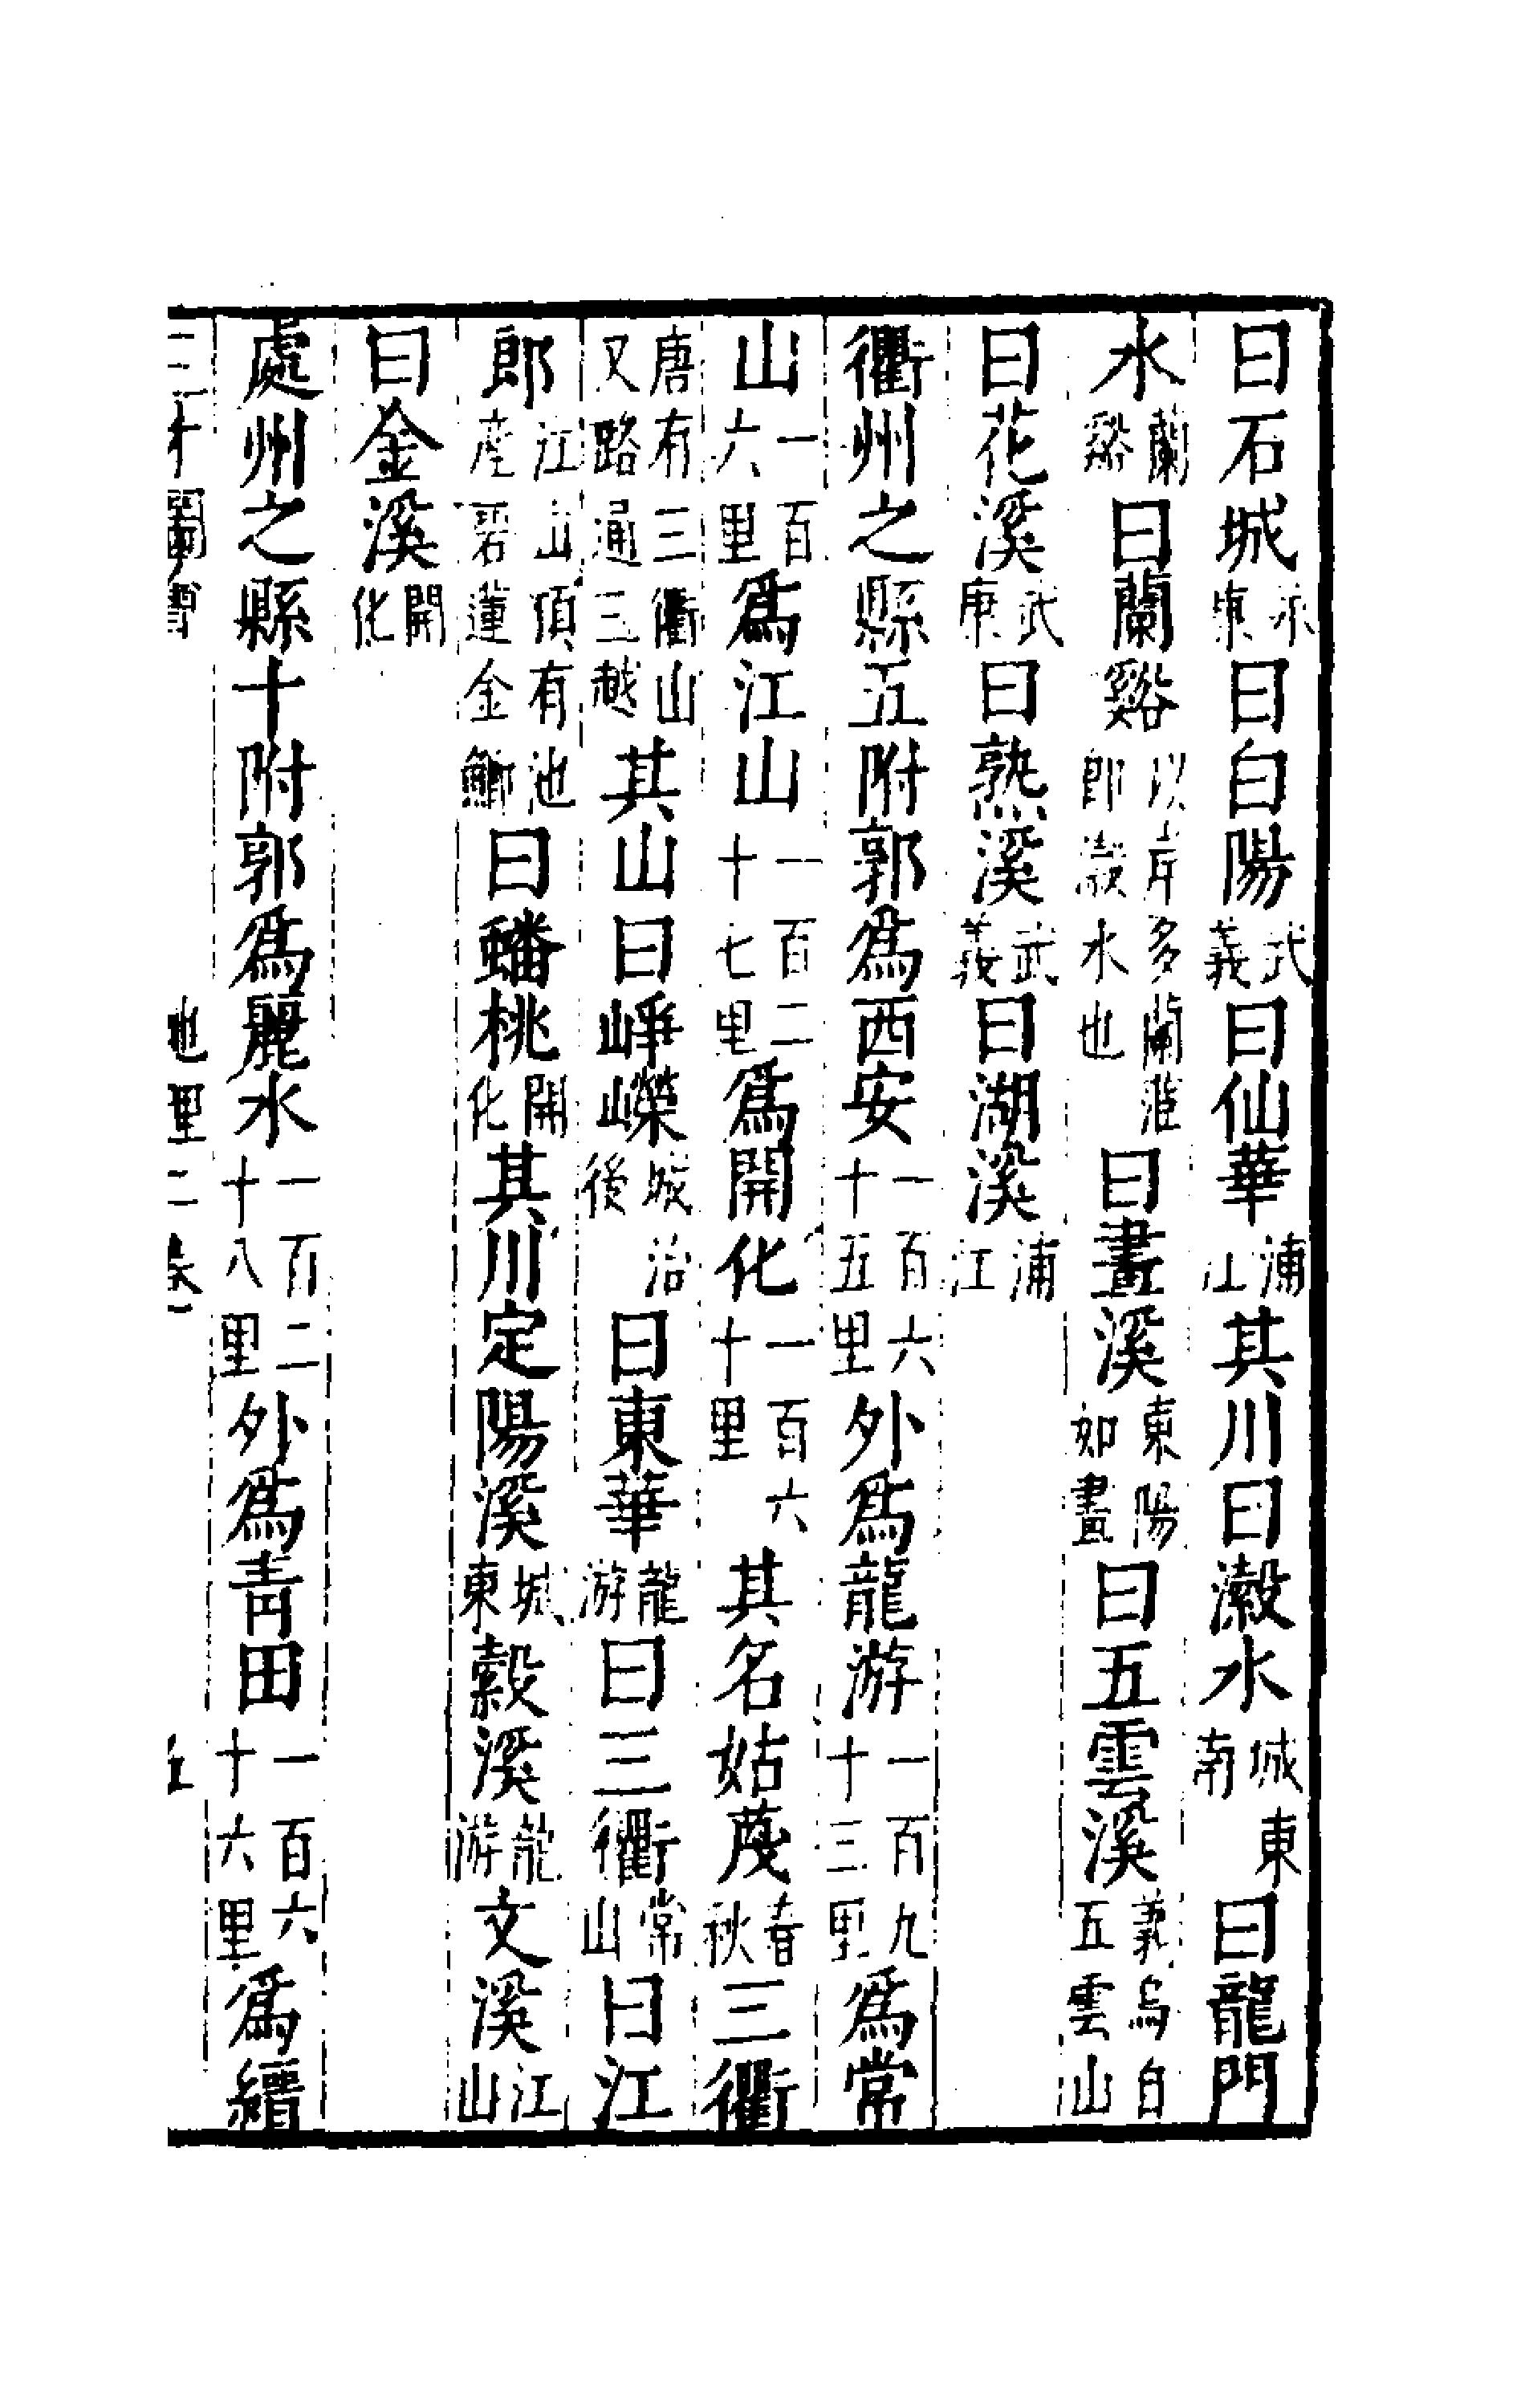 曰石城永康曰白陽武義曰仙華浦江其川曰瀔水城東南曰龍門
水蘭谿曰蘭谿以岸多蘭茝卽瀔水也曰畫溪東陽如畫曰五雲溪義烏自五雲山
曰花溪武康曰熟溪武義曰湖溪浦江
衢州之縣五附郭爲西安一百六十五里外爲龍游一百九十三里爲常
山一百六里爲江山一百二十七里爲開化一百六十里其名姑蔑春秋三衢
唐有三衢山又路通三越其山曰崢嶸城治後曰東華龍游曰三衢常山曰江
郎江山頂有池產碧蓮金鯽曰蟠桃開化其川定陽溪城東縠溪龍游文溪江山
曰金溪開化
處州之縣十附郭爲麗水一百二十八里外爲靑田一百六十六里爲縉
三才圖會 地理二卷 五